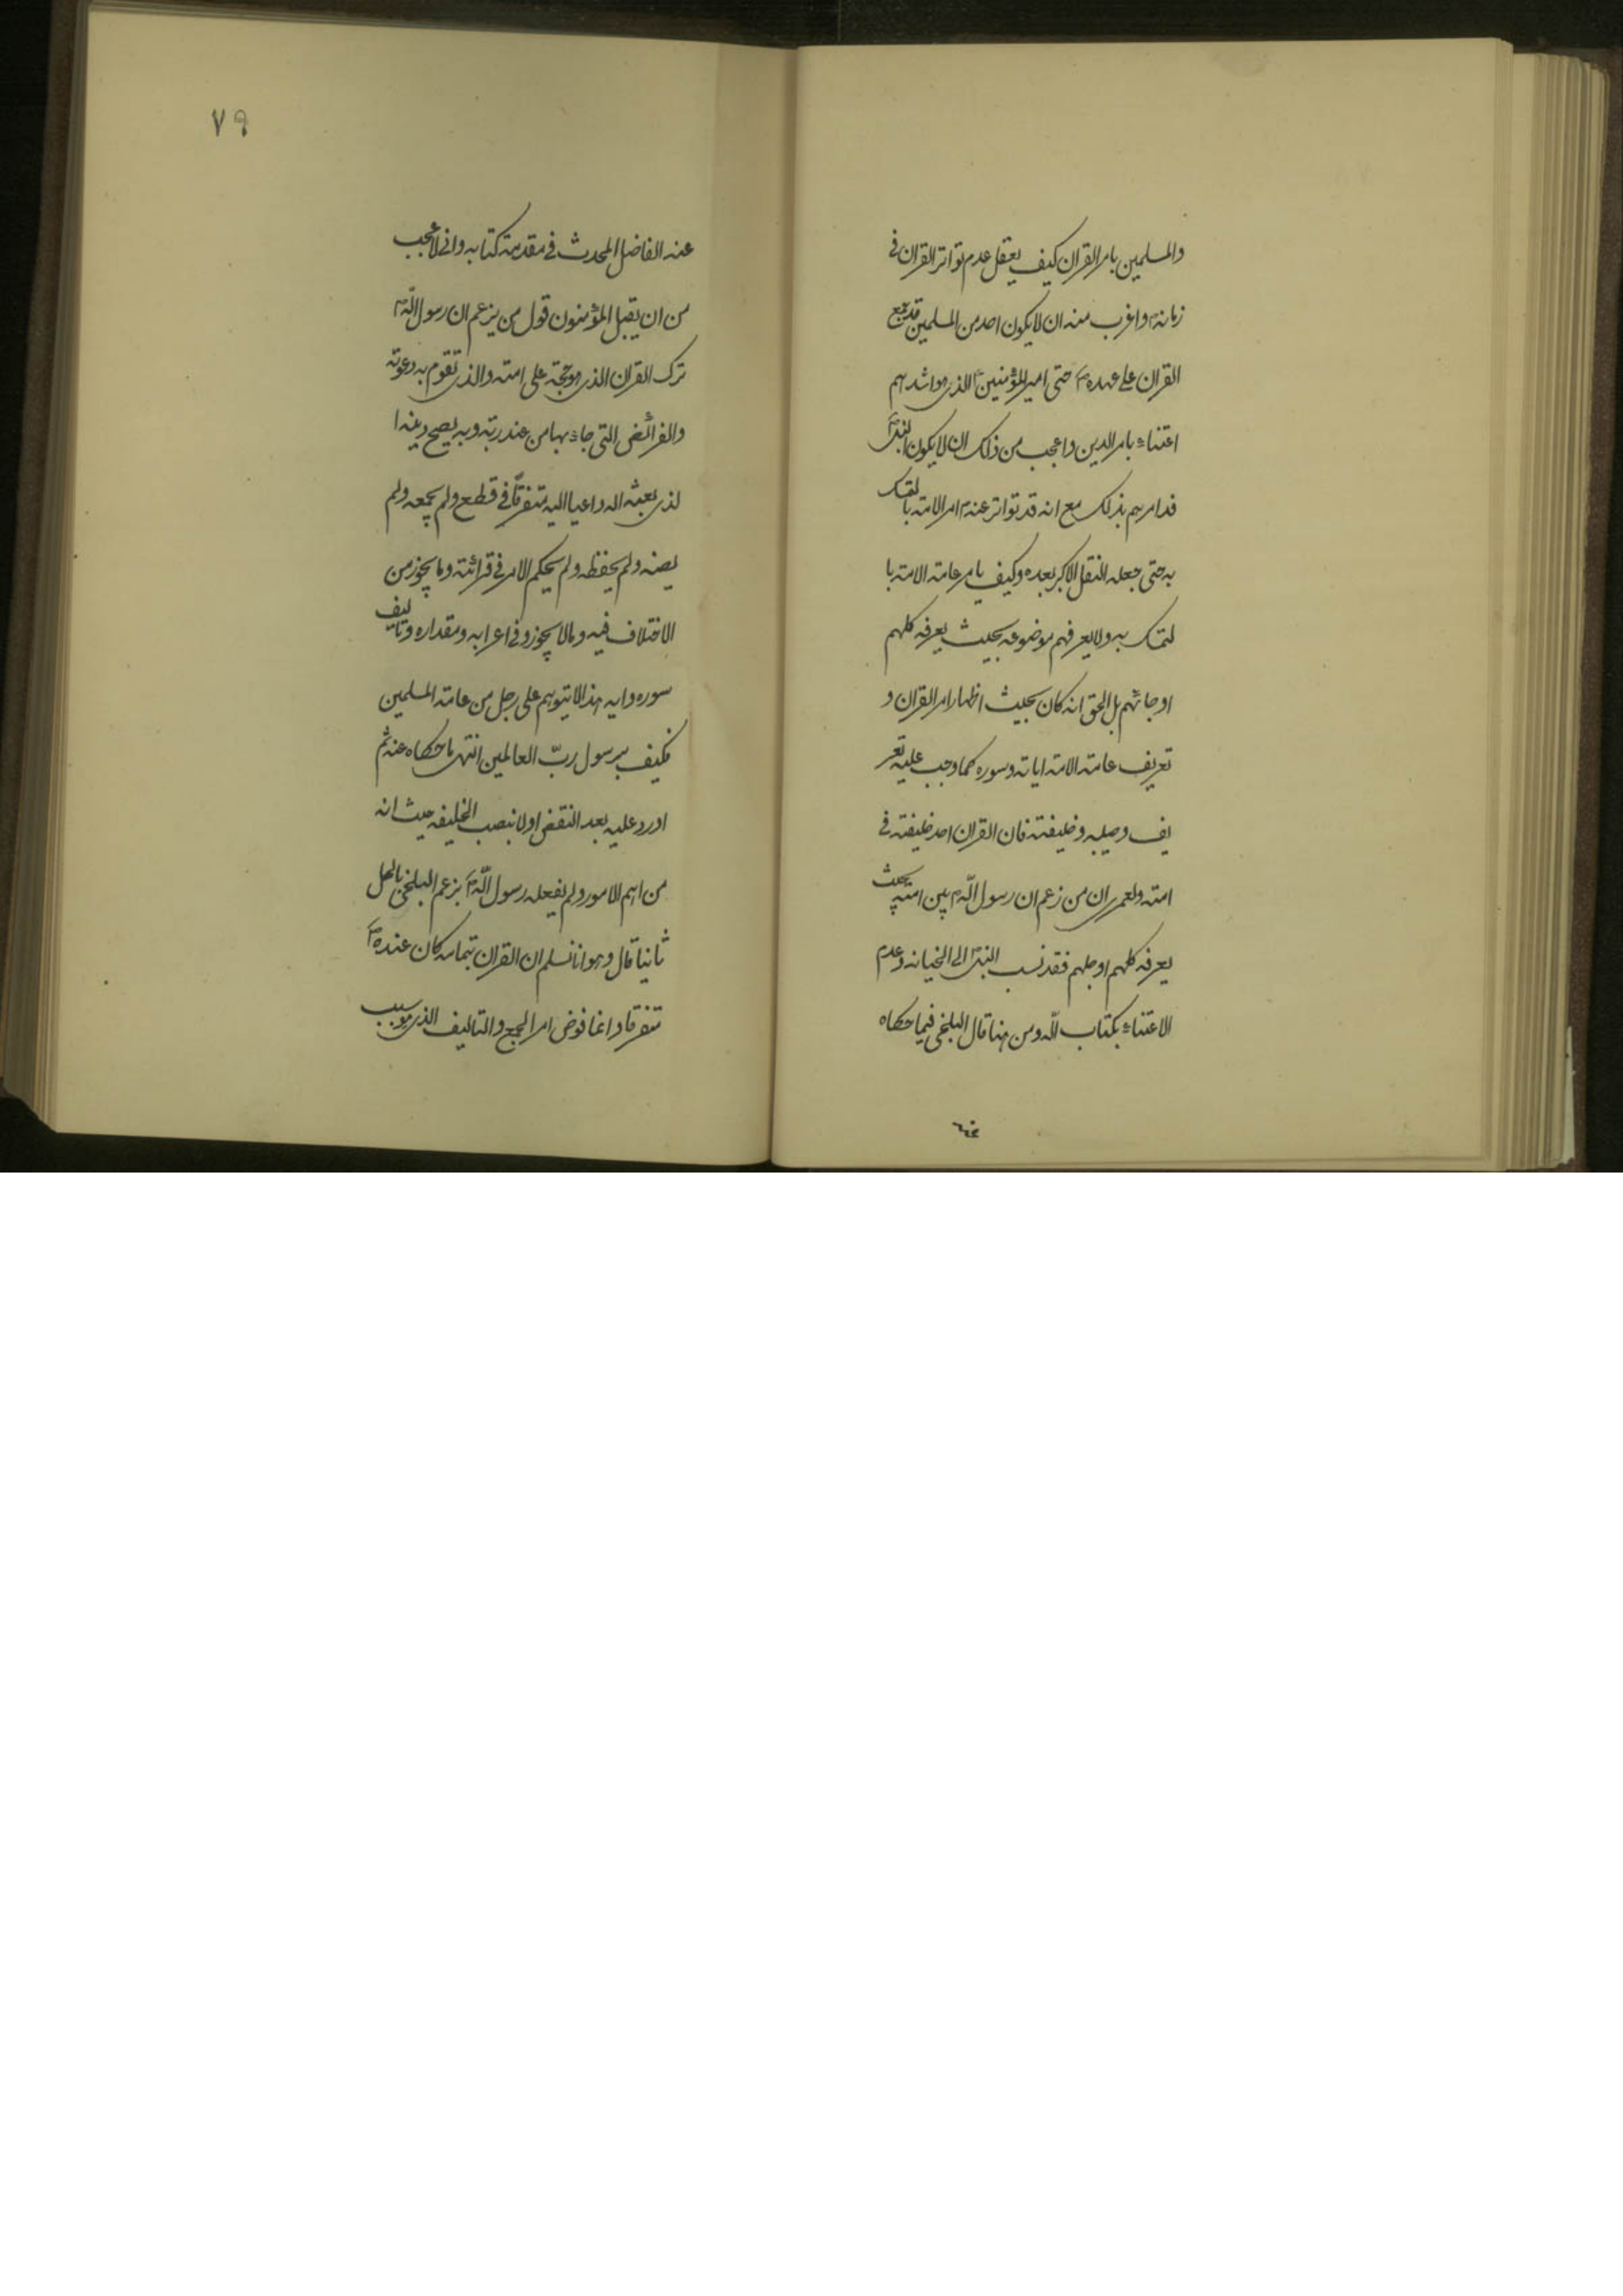 والمسلمين بامر القران كيف يعقل عدم تواتر القران في
زمانه و اغرب منه ان لا يكون احد من المسلمين قد جمع
القران على عهده ص حتى امير المؤمنين ع الذي هو اشدهم
اعتناء بامر الدين واعجب من ذلك ان لا يكون النبي ص
قد امرهم بذلك مع انه قد تواتر عنه ص امر الامة بالتمسك
به حتى جعله الثقل الاكبر بعده وكيف يامر عامة الامة با
لتمسك به ولا يعرفهم موضوعه بحيث يعرفه كلهم
او جلهم بل الحق انه كان بحيث اظهار امر القران و
تعريف عامة الامة اياته وسوره كما وجب عليه تعر
يف وصيه وخليفته فان القران احد خليفته في
امته ولعمري ان من زعم ان رسول الله ص بين امته بحيث
يعرفه كلهم او جلهم فقد نسب النبي ص الى الخيانه وعدم
الاعتناء بكتاب الله ومن هنا قال البلخي فيما حكاه
٧٩
عنه الفاضل المحدث في مقدمة كتابه واني لاعجب
من ان يقبل المؤمنون قول من يزعم ان رسول الله ص
ترك القران الذي هو حجة على امته والذي تقوم به دعوته
والفرائض التي جاء بها من عند ربه وبه يصح دينه ا
لذي بعثه الله داعيا اليه متفرقاً في قطع ولم يجمعه ولم
يصنه ولم يحفظه ولم يحكم الامر في قرائته وما يجوز من
الاختلاف فيه وما لا يجوز وفي اعرابه ومقداره وتاليف
سوره وايه هذا لا يتوهم على رجل من عامة المسلمين
فكيف برسول ربّ العالمين انتهى ما حكاه عنه ثم
اورد عليه بعد النقض اولا بنصب الخليفه حيث انه
من اهم الامور ولم يفعله رسول الله ص بزعم البلخي بالحل
ثانيا قال وهو انا نسلم ان القران بتمامه كان عنده ص
متفرقا و انما فوض امر الجمع والتاليف الذي هو سبب